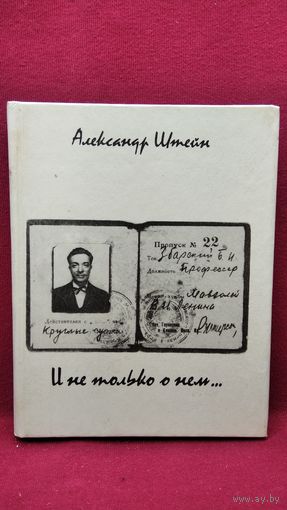 Александр Штейн
Пропуск № 22
Тов. Збарский Б И
Должность Профессор
Мавзолей
В.И. Ленина
Действителен с
Круглые сутки
И не только о нем...
www.ay.by